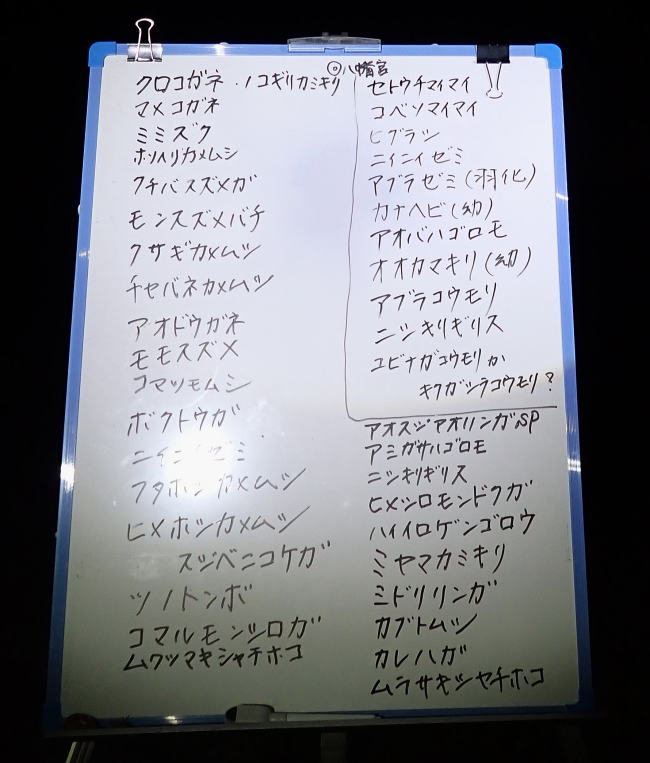 クロコガネ ・ノコギリカミキリ
マメコガネ
ミミズク
ホソヘリカメムシ
クチバスズメガ
モンスズメバチ
クサギカメムシ
チャバネカメムシ
アオドウガネ
モモスズメ
コマツモムシ
ボクトウガ
ニイニイゼミ
フタホシカメムシ
ヒメホシカメムシ
スジベニコケガ
ツノトンボ
コマルモンシロガ
ムクツマキシャチホコ
◎八幡宮
セトウチマイマイ
コベソマイマイ
ヒグラシ
ニイニイゼミ
アブラゼミ(羽化)
カナヘビ(幼)
アオバハゴロモ
オオカマキリ(幼)
アブラコウモリ
ニシキリギリス
ユビナガコウモリか
キクガシラコウモリ?
アオスジアオリンガsp
アミガサハゴロモ
ニシキリギリス
ヒメシロモンドクガ
ハイイロゲンゴロウ
ミヤマカミキリ
ミドリリンガ
カブトムシ
カレハガ
ムラサキシャチホコ